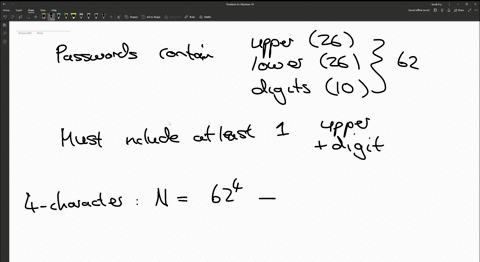 Passwords contain upper (26)
lower (26)
digits (10)
62
Must include at least 1 upper
+ digit
4-character : N = 62⁴ —